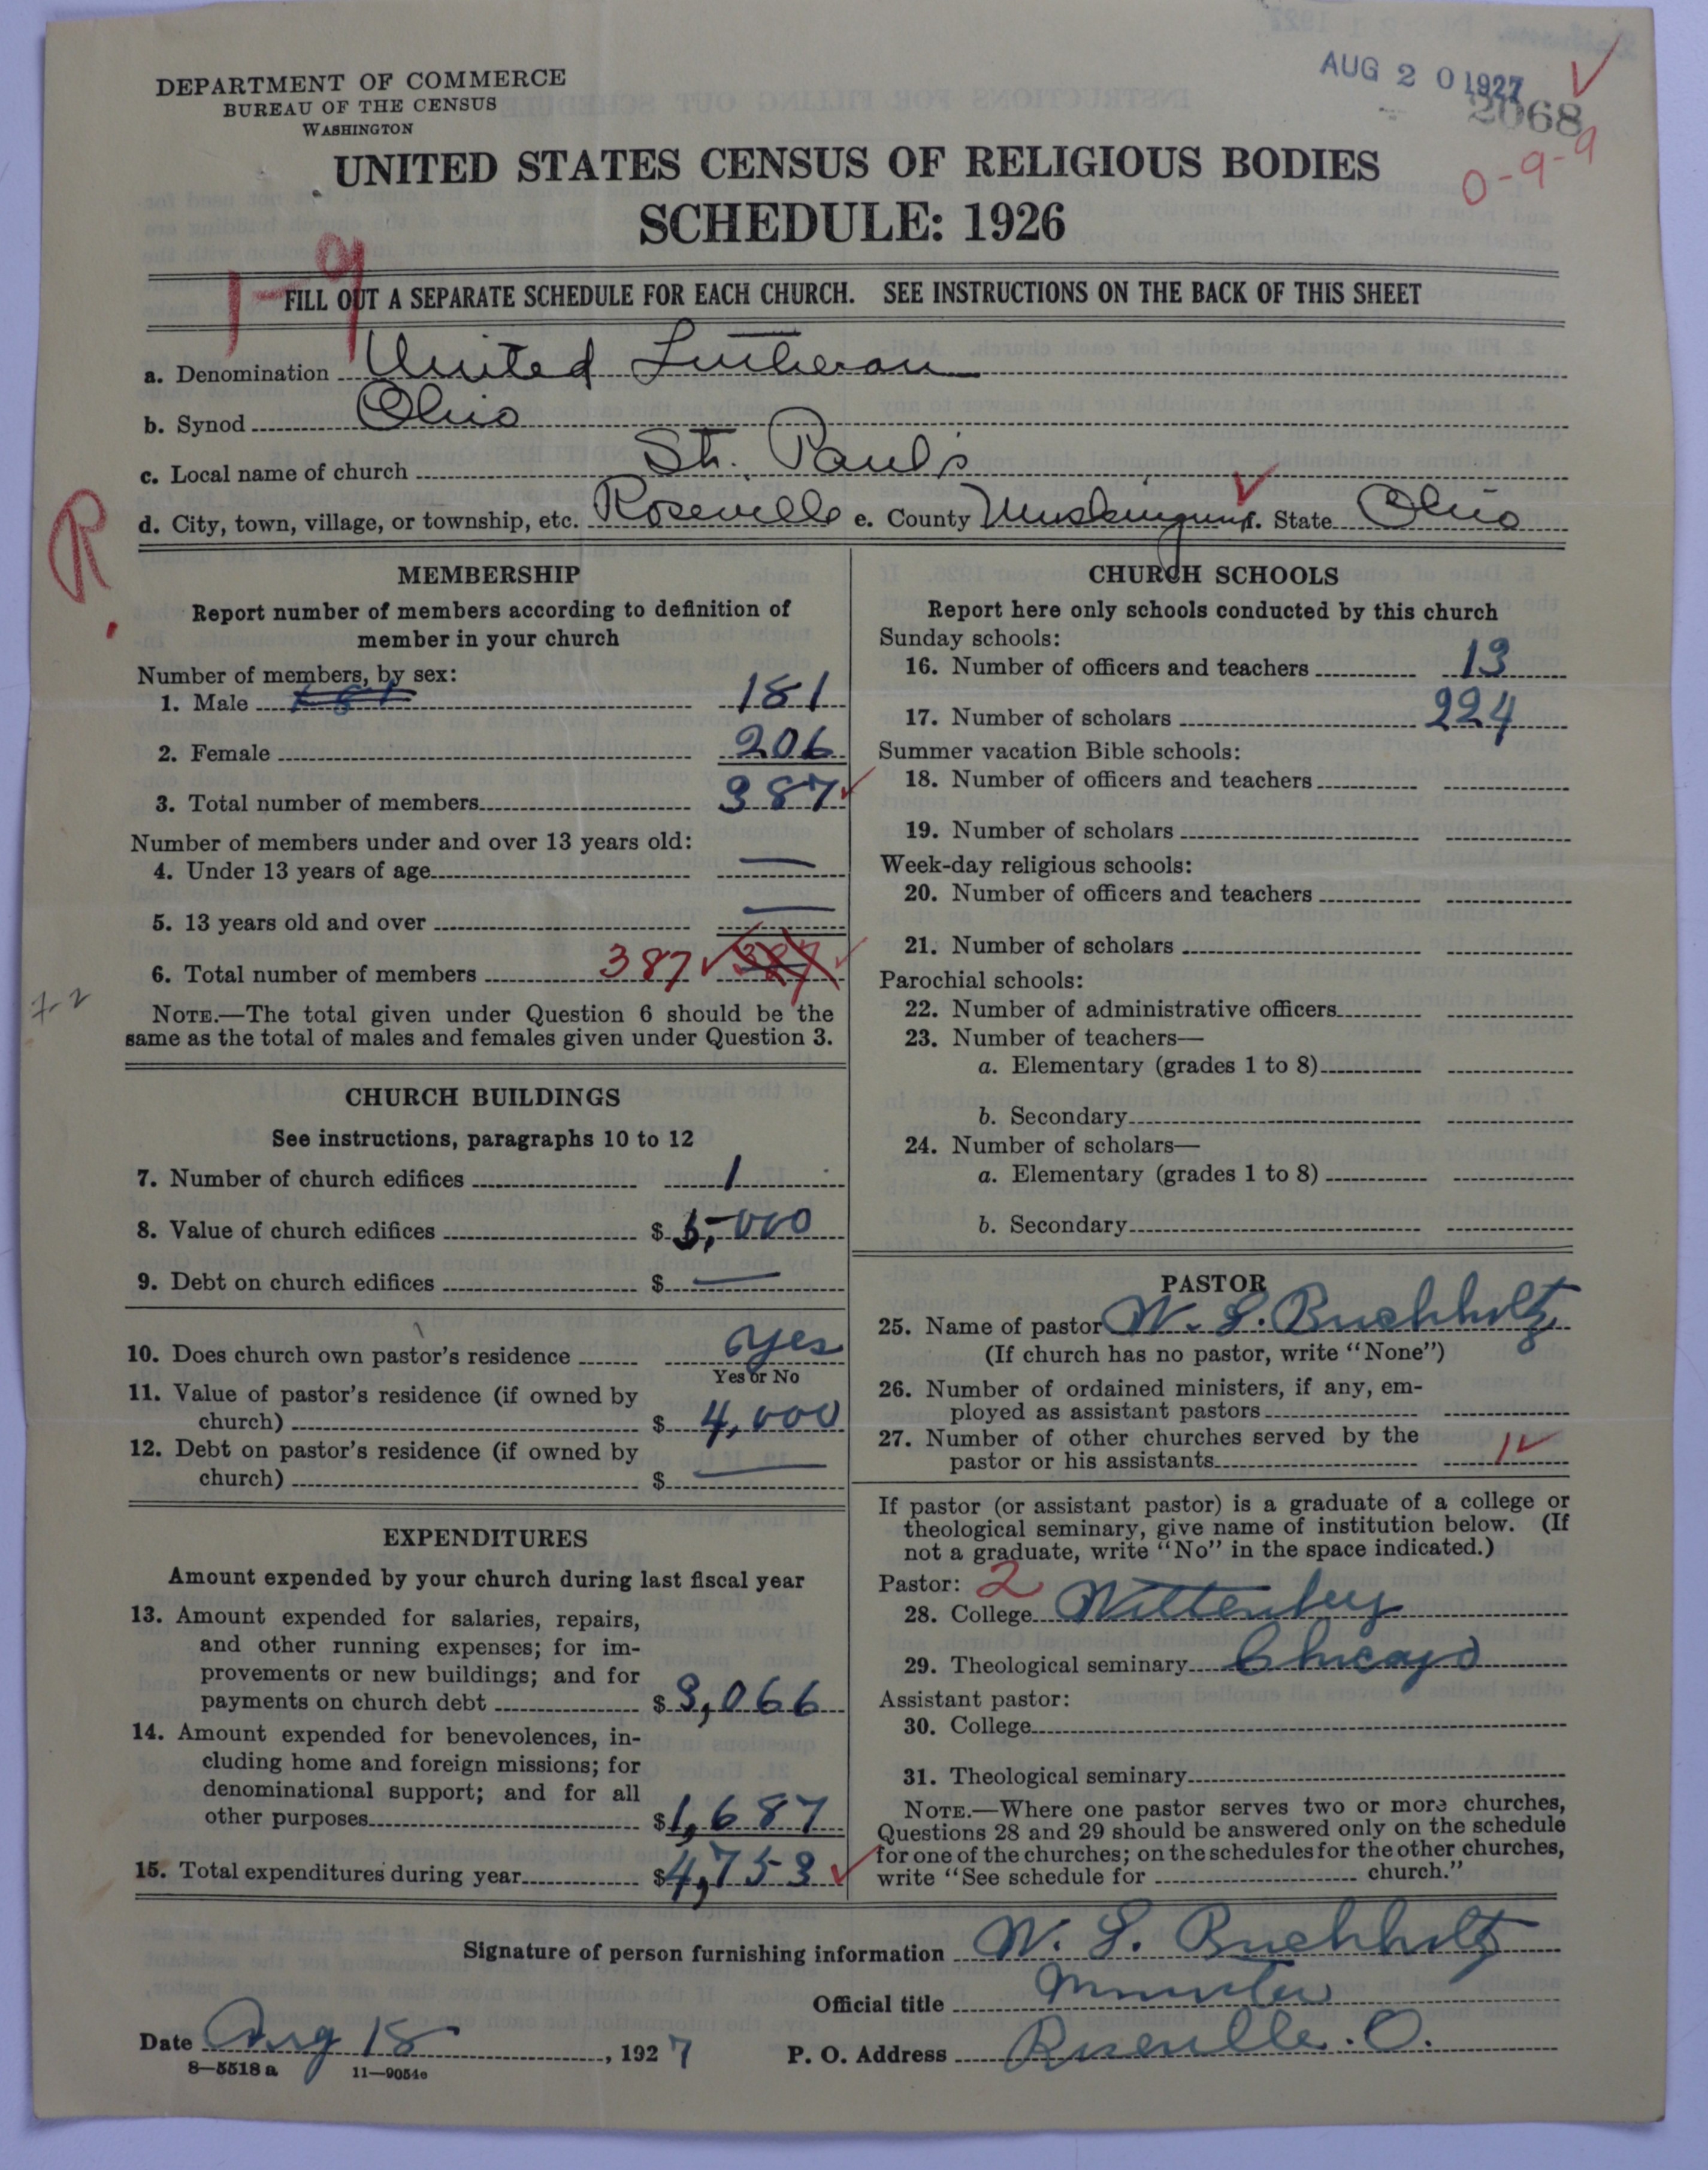 AUG 20 1927
2068
0-9-9
DEPARTMENT OF COMMERCE
BUREAU OF THE CENSUS
WASHINGTON
UNITED STATES CENSUS OF RELIGIOUS BODIES
SCHEDULE: 1926
1-9
FILL OUT A SEPARATE SCHEDULE FOR EACH CHURCH. SEE INSTRUCTIONS ON THE BACK OF THIS SHEET
a. Denomination United Lutheran
b. Synod Ohio
c. Local name of church St. Paul's
d. City, town, village, or township, etc. Roseville e. County Muskingum f. State Ohio
R
MEMBERSHIP
Report number of members according to definition of
member in your church
Number of members, by sex:
1. Male 181
2. Female 206
3. Total number of members 387
Number of members under and over 13 years old:
4. Under 13 years of age —
5. 13 years old and over —
6. Total number of members 387 387
7-2
NOTE.—The total given under Question 6 should be the
same as the total of males and females given under Question 3.
CHURCH BUILDINGS
See instructions, paragraphs 10 to 12
7. Number of church edifices 1
8. Value of church edifices $ 5,000
9. Debt on church edifices $ —
10. Does church own pastor's residence yes
Yes or No
11. Value of pastor's residence (if owned by
church) $ 4,000
12. Debt on pastor's residence (if owned by
church) $ —
EXPENDITURES
Amount expended by your church during last fiscal year
13. Amount expended for salaries, repairs,
and other running expenses; for im-
provements or new buildings; and for
payments on church debt $ 3,066
14. Amount expended for benevolences, in-
cluding home and foreign missions; for
denominational support; and for all
other purposes $ 1,687
15. Total expenditures during year $ 4,753
CHURCH SCHOOLS
Report here only schools conducted by this church
Sunday schools:
16. Number of officers and teachers 13
17. Number of scholars 224
Summer vacation Bible schools:
18. Number of officers and teachers
19. Number of scholars
Week-day religious schools:
20. Number of officers and teachers
21. Number of scholars
Parochial schools:
22. Number of administrative officers
23. Number of teachers—
a. Elementary (grades 1 to 8)
b. Secondary
24. Number of scholars—
a. Elementary (grades 1 to 8)
b. Secondary
PASTOR
25. Name of pastor W. L. Buchholtz
(If church has no pastor, write "None")
26. Number of ordained ministers, if any, em-
ployed as assistant pastors
27. Number of other churches served by the
pastor or his assistants 1
If pastor (or assistant pastor) is a graduate of a college or
theological seminary, give name of institution below. (If
not a graduate, write "No" in the space indicated.)
Pastor: 2
28. College Wittenberg
29. Theological seminary Chicago
Assistant pastor:
30. College
31. Theological seminary
NOTE.—Where one pastor serves two or more churches,
Questions 28 and 29 should be answered only on the schedule
for one of the churches; on the schedules for the other churches,
write "See schedule for church."
Signature of person furnishing information W. L. Buchholtz
Official title Minister
Date Aug 18, 1927 P. O. Address Roseville. O.
8—5518 a 11—9054e